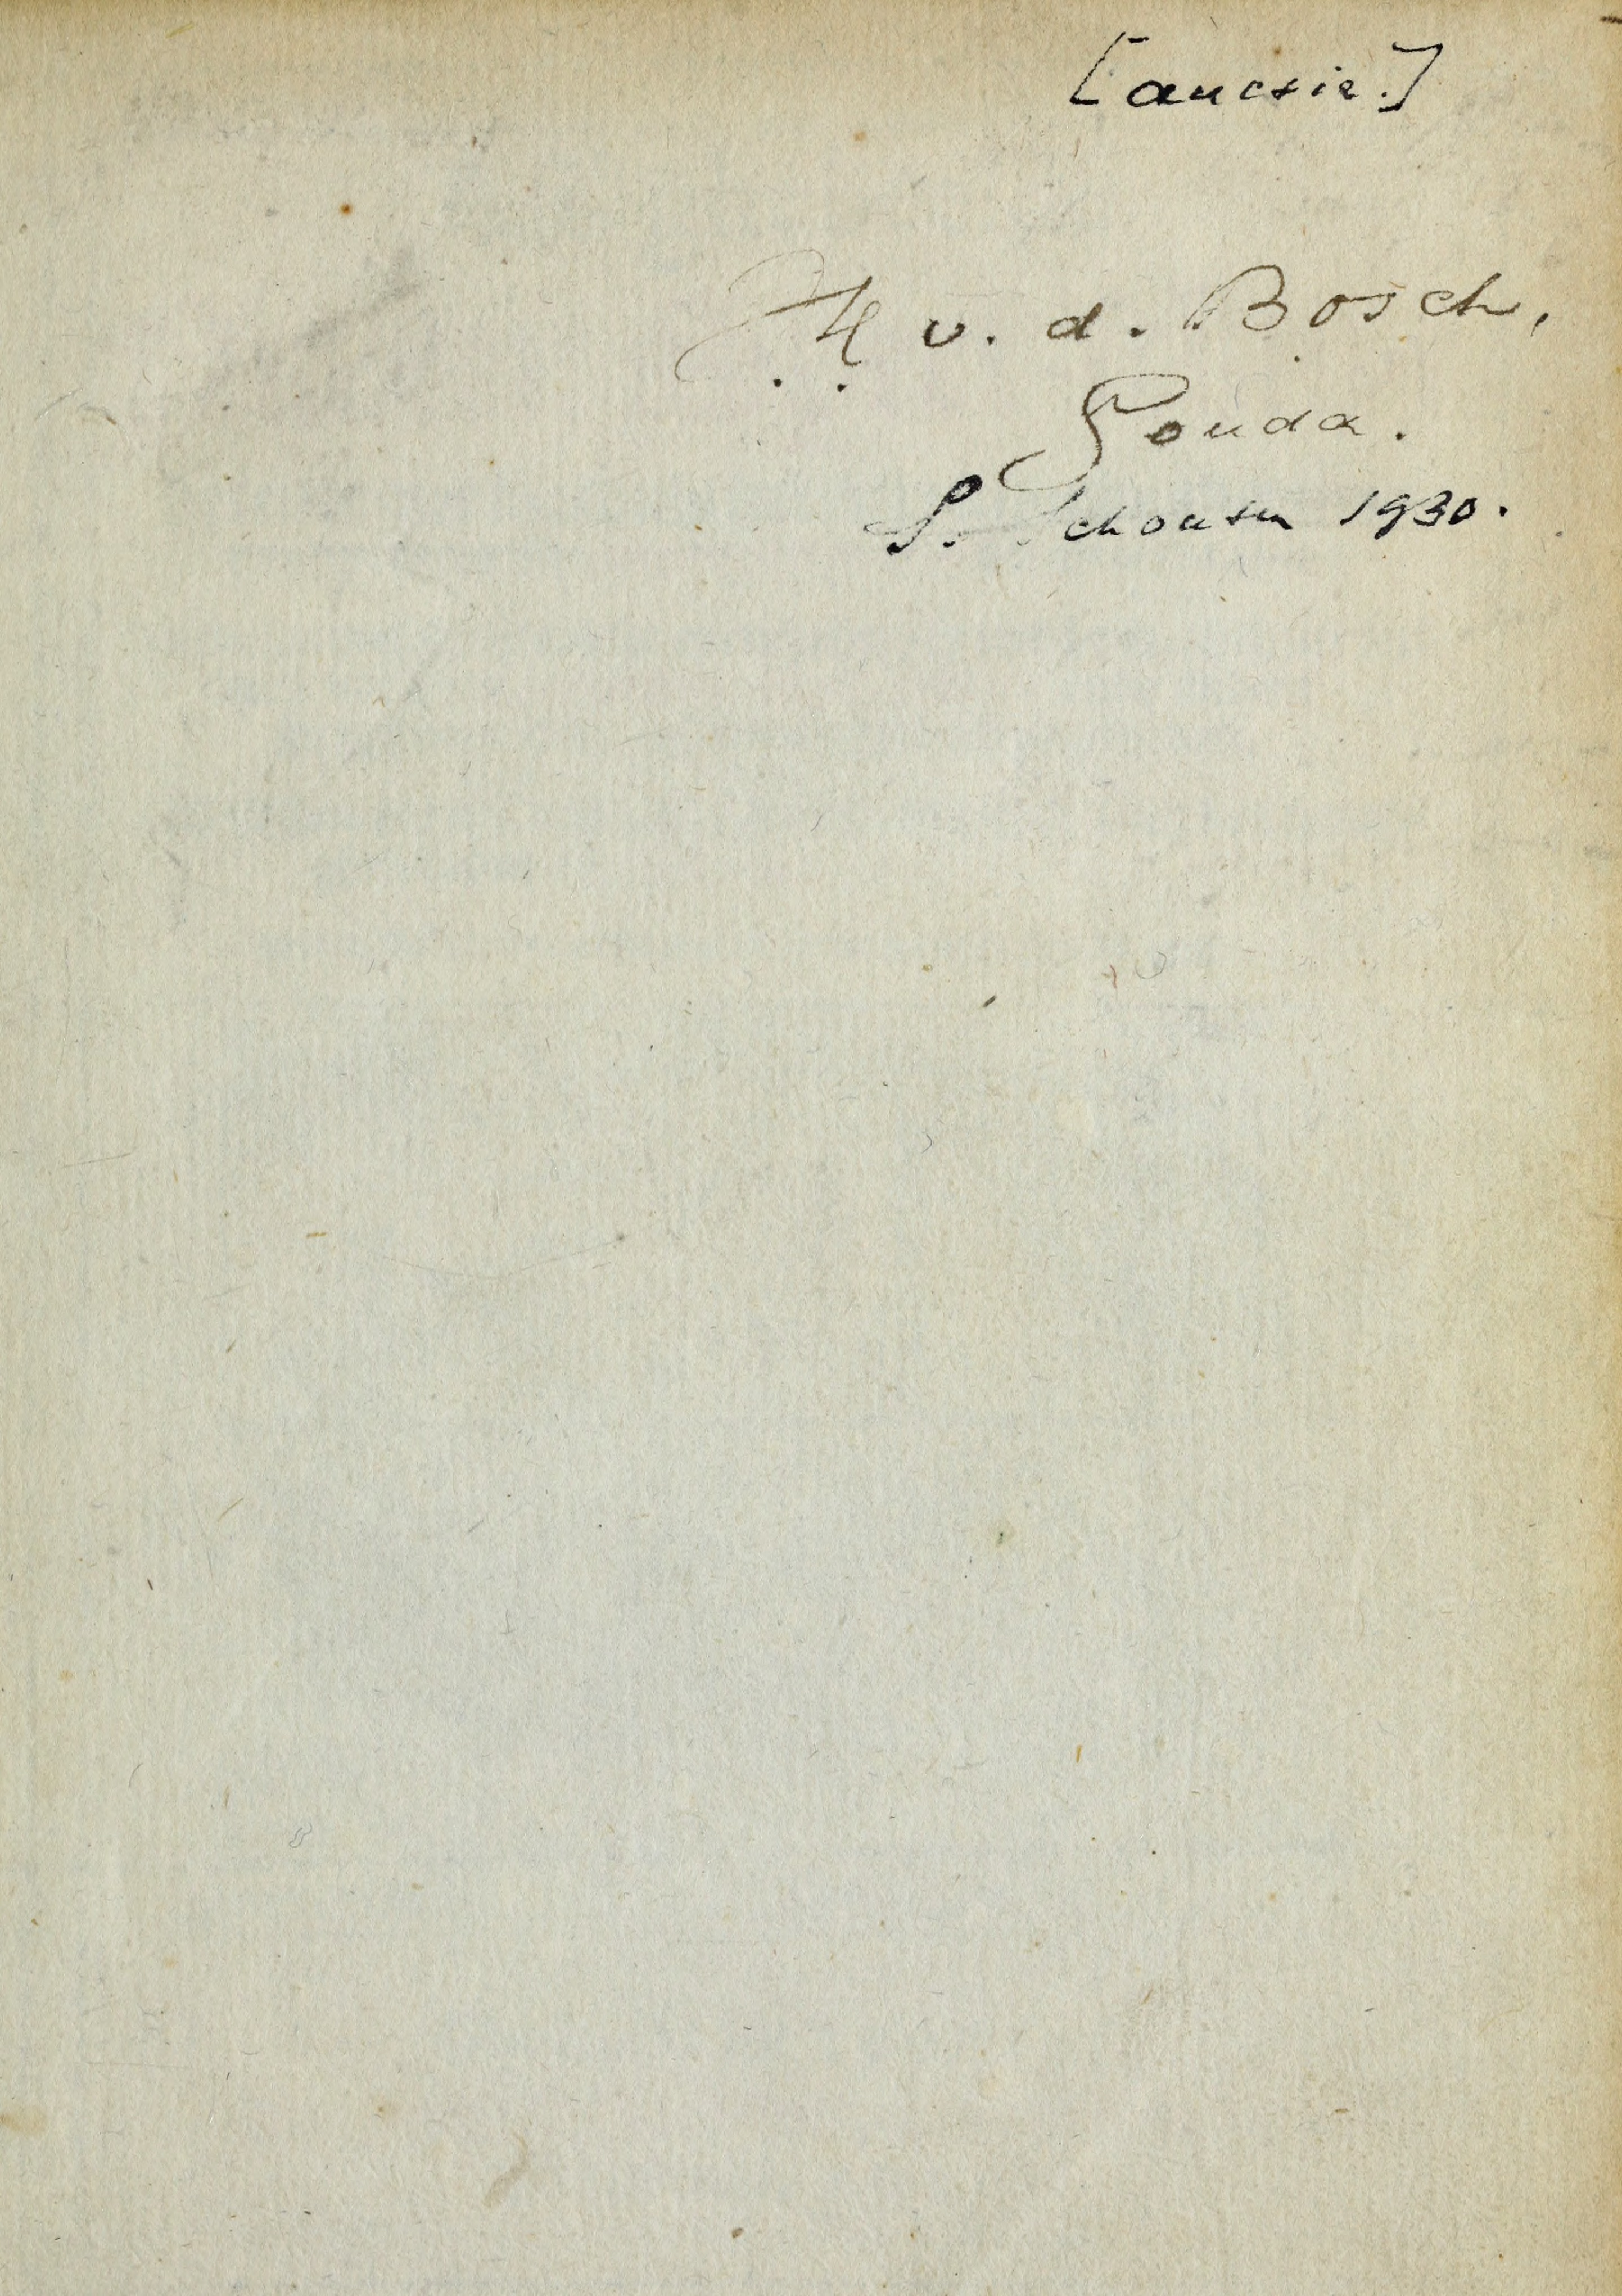 [auctie.]
H v. d. Bosch,
Gouda.
S. Schouten 1930.